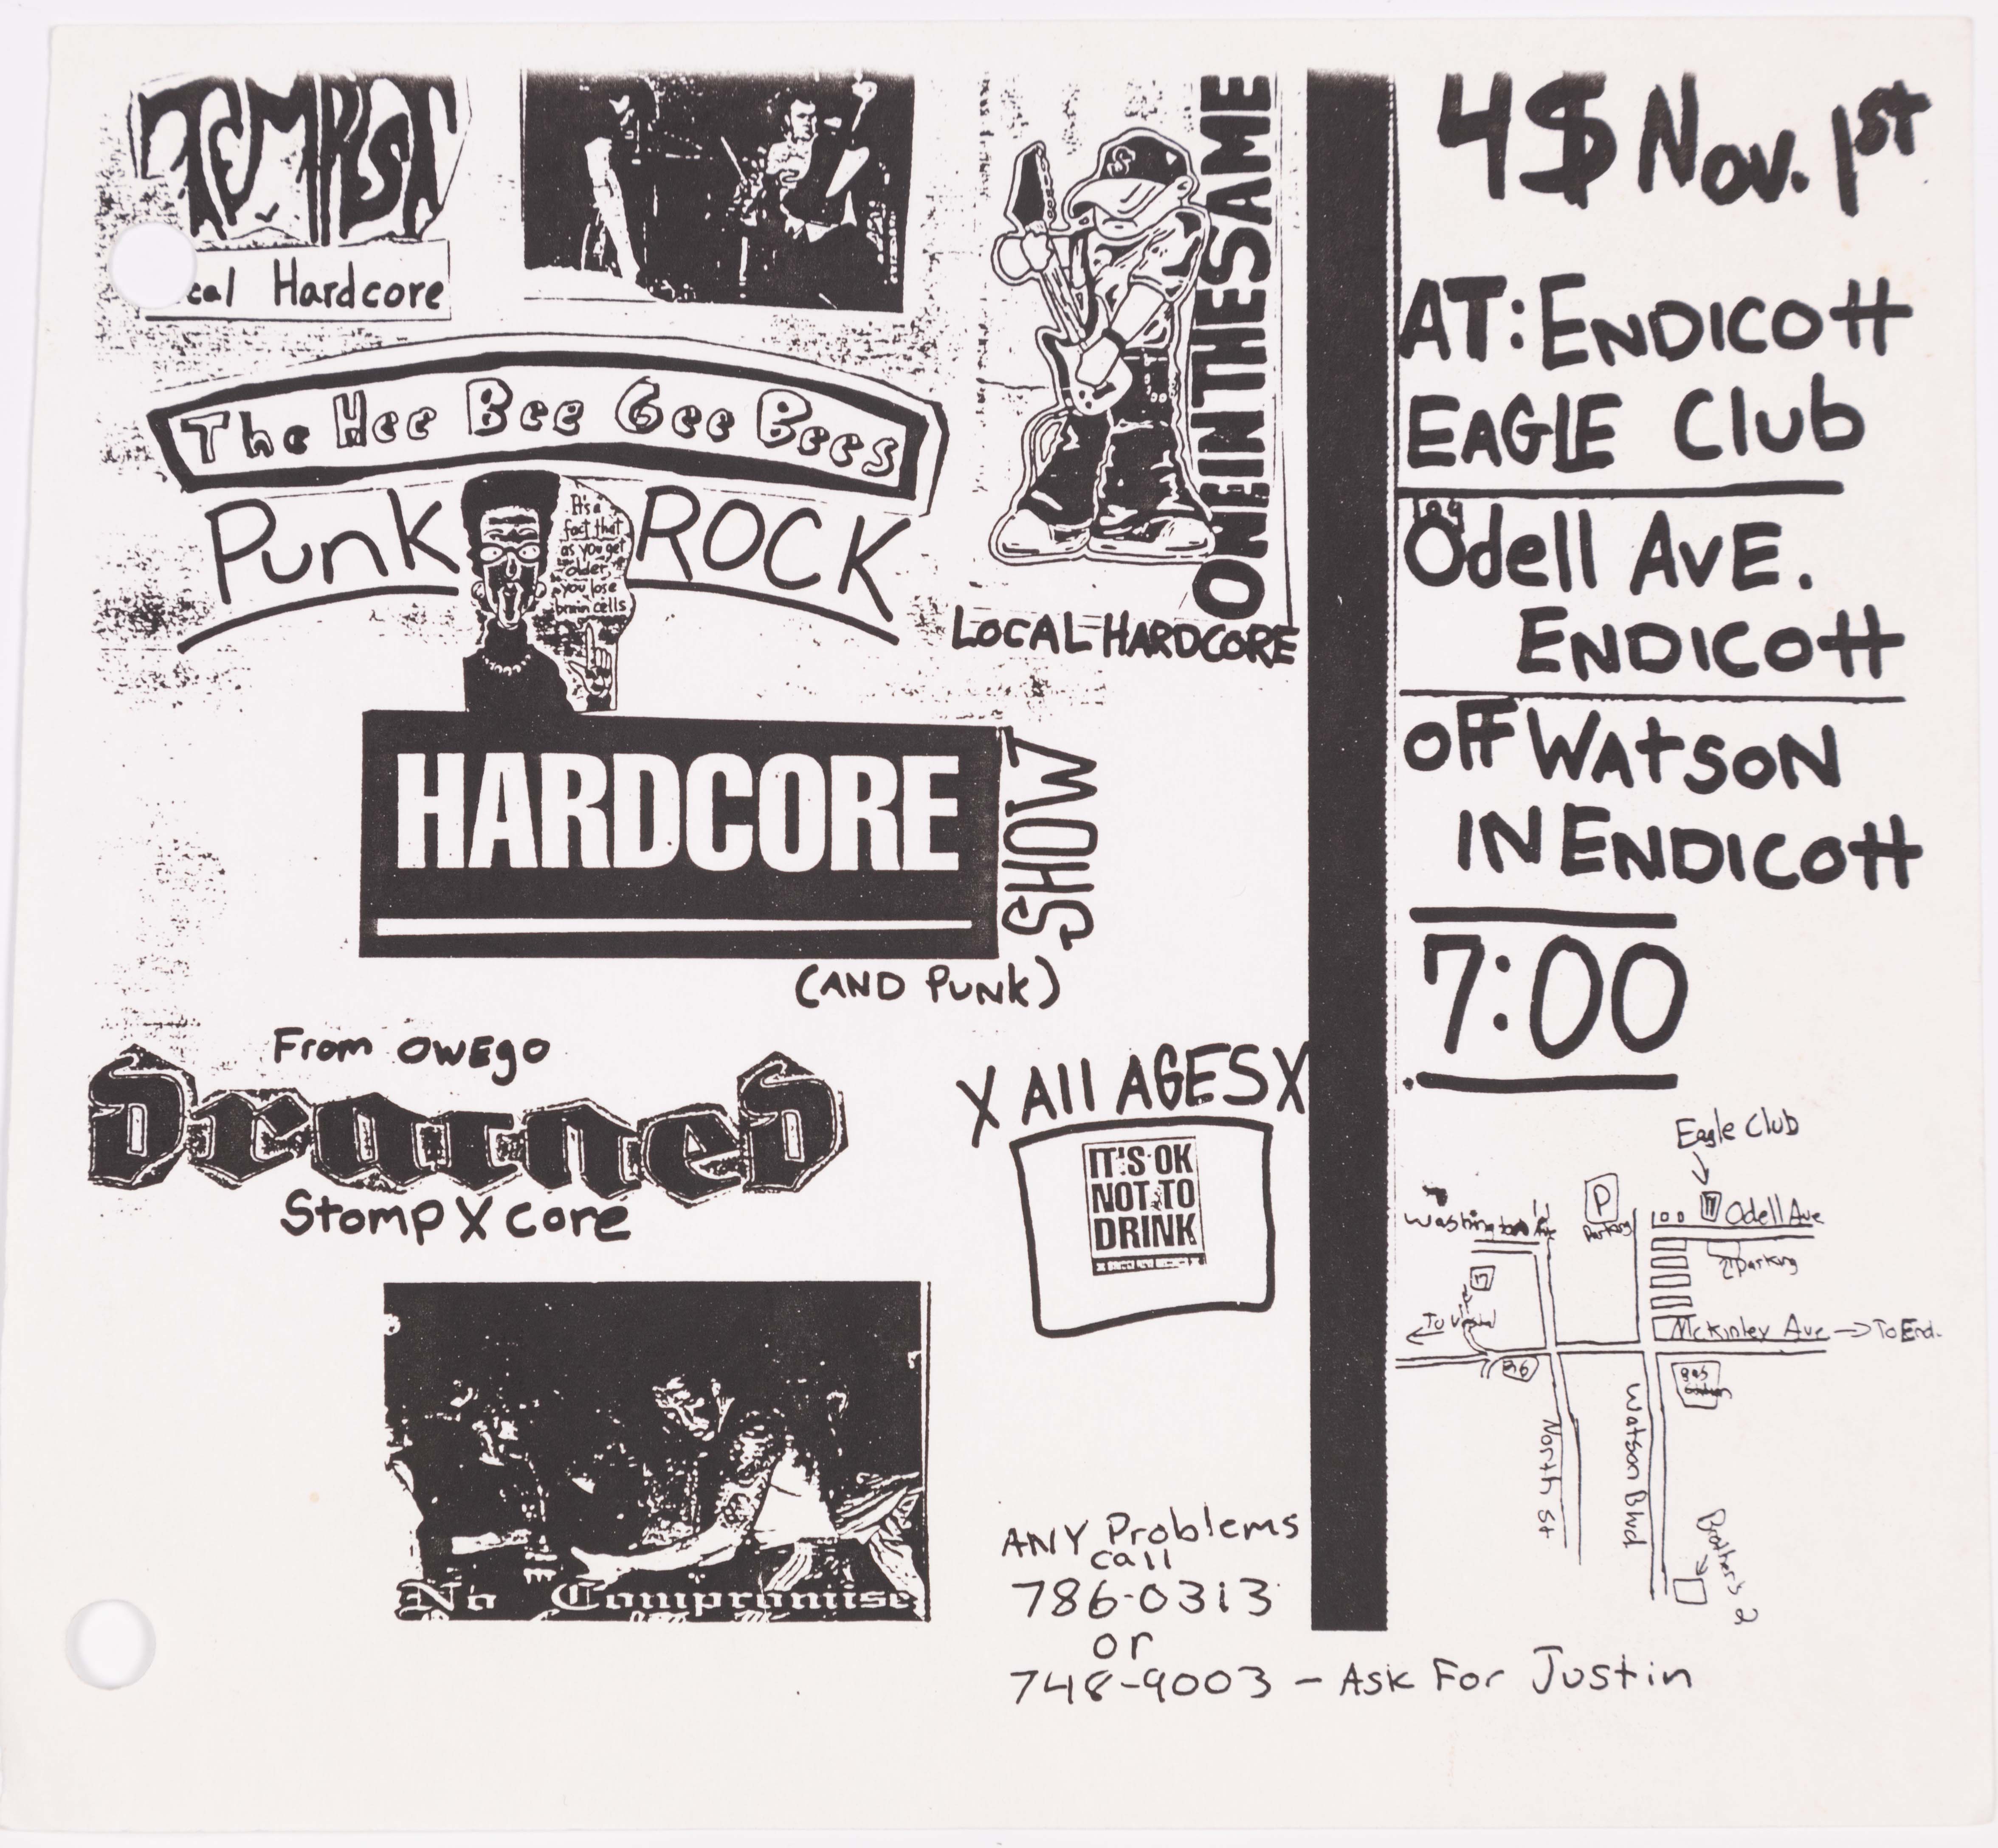 TEMPEST
cal Hardcore
ONE IN THE SAME
LOCAL HARDCORE
The Hee Bee Gee Bees
Punk ROCK
It's a
fact that
as you get
older,
you lose
brain cells
HARDCORE
SHOW
(AND PUNK)
From OWEgo
DraineD
Stomp X core
No Compromise
X All AGES X
IT'S OK
NOT TO
DRINK
ANY Problems
call
786-0313
or
748-9003 - Ask For Justin
4$ Nov. 1st
AT: ENDICOtt
EAGlE Club
Odell AvE.
ENDICOtt
off WAtsoN
IN ENDICOtt
7:00
Eagle Club
P
Parking
Odell Ave
Parking
McKinley Ave → To End.
gas
North St
Watson Blvd
Brother's 2